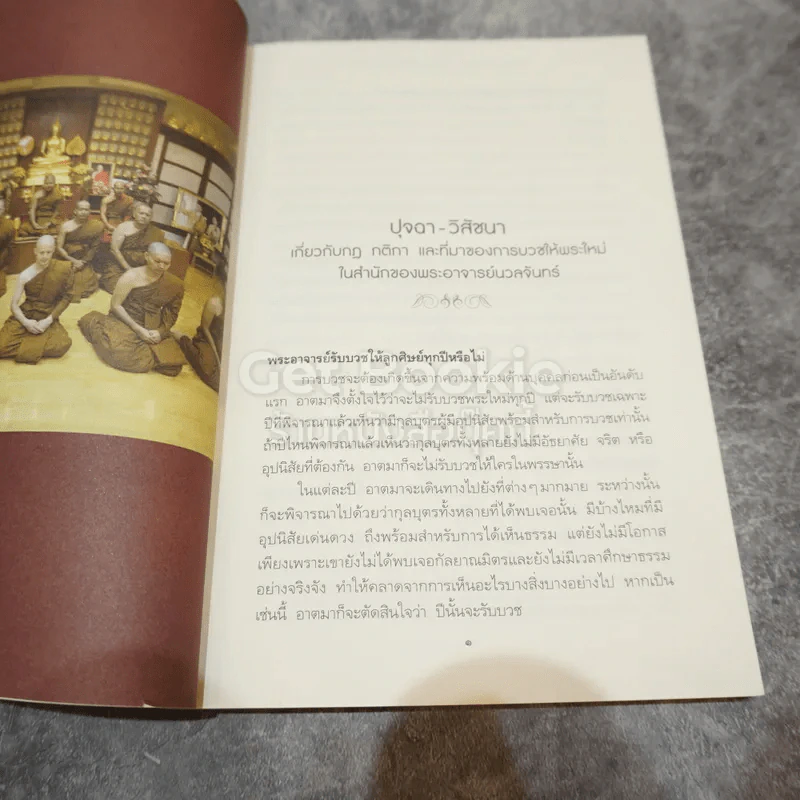 ปุจฉา - วิสัชนา
เกี่ยวกับกฎ กติกา และที่มาของการบวชให้พระใหม่
ในสำนักของพระอาจารย์นวลจันทร์
พระอาจารย์รับบวชให้ลูกศิษย์ทุกปีหรือไม่
การบวชจะต้องเกิดขึ้นจากความพร้อมด้านบุคคลก่อนเป็นอันดับ
แรก อาตมาจึงตั้งใจไว้ว่าจะไม่รับบวชพระใหม่ทุกปี แต่จะรับบวชเฉพาะ
ปีที่พิจารณาแล้วเห็นว่ามีกุลบุตรผู้มีอุปนิสัยพร้อมสำหรับการบวชเท่านั้น
ถ้าปีไหนพิจารณาแล้วเห็นว่ากุลบุตรทั้งหลายยังไม่มีอัธยาศัย จริต หรือ
อุปนิสัยที่ต้องกัน อาตมาก็จะไม่รับบวชให้ใครในพรรษานั้น
ในแต่ละปี อาตมาจะเดินทางไปยังที่ต่างๆ มากมาย ระหว่างนั้น
ก็จะพิจารณาไปด้วยว่ากุลบุตรทั้งหลายที่ได้พบเจอนั้น มีบ้างไหมที่มี
อุปนิสัยเด่นดวง ถึงพร้อมสำหรับการได้เห็นธรรม แต่ยังไม่มีโอกาส
เพียงเพราะเขายังไม่ได้พบเจอกัลยาณมิตรและยังไม่มีเวลาศึกษาธรรม
อย่างจริงจัง ทำให้คลาดจากการเห็นอะไรบางสิ่งบางอย่างไป หากเป็น
เช่นนี้ อาตมาก็จะตัดสินใจว่า ปีนั้นจะรับบวช
๑
Get Bookie